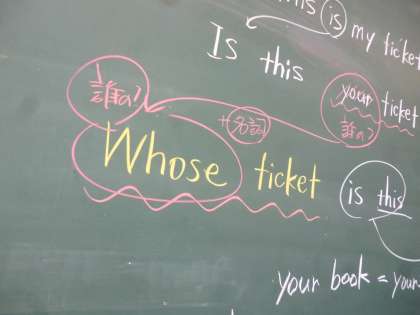 is my ticket
Is this your ticket
誰の?
+名詞
誰の?
Whose ticket is this
your book = your